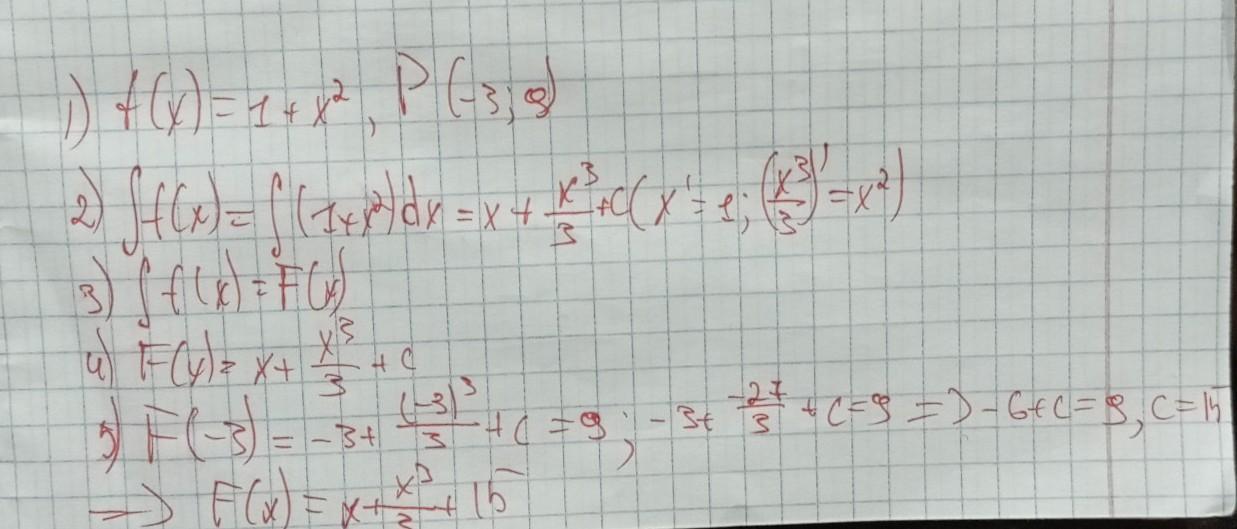 1) f(x) = 1 + x², P(-3; 9)
2) ∫f(x) = ∫(1+x²)dx = x + x³/3 + C (x' = 1; (x³/3)' = x²)
3) ∫f(x) = F(x)
4) F(x) = x + x³/3 + C
5) F(-3) = -3 + (-3)³/3 + C = 9; -3 + -27/3 + C = 9 => -6 + C = 9, C = 15
=> F(x) = x + x³/3 + 15